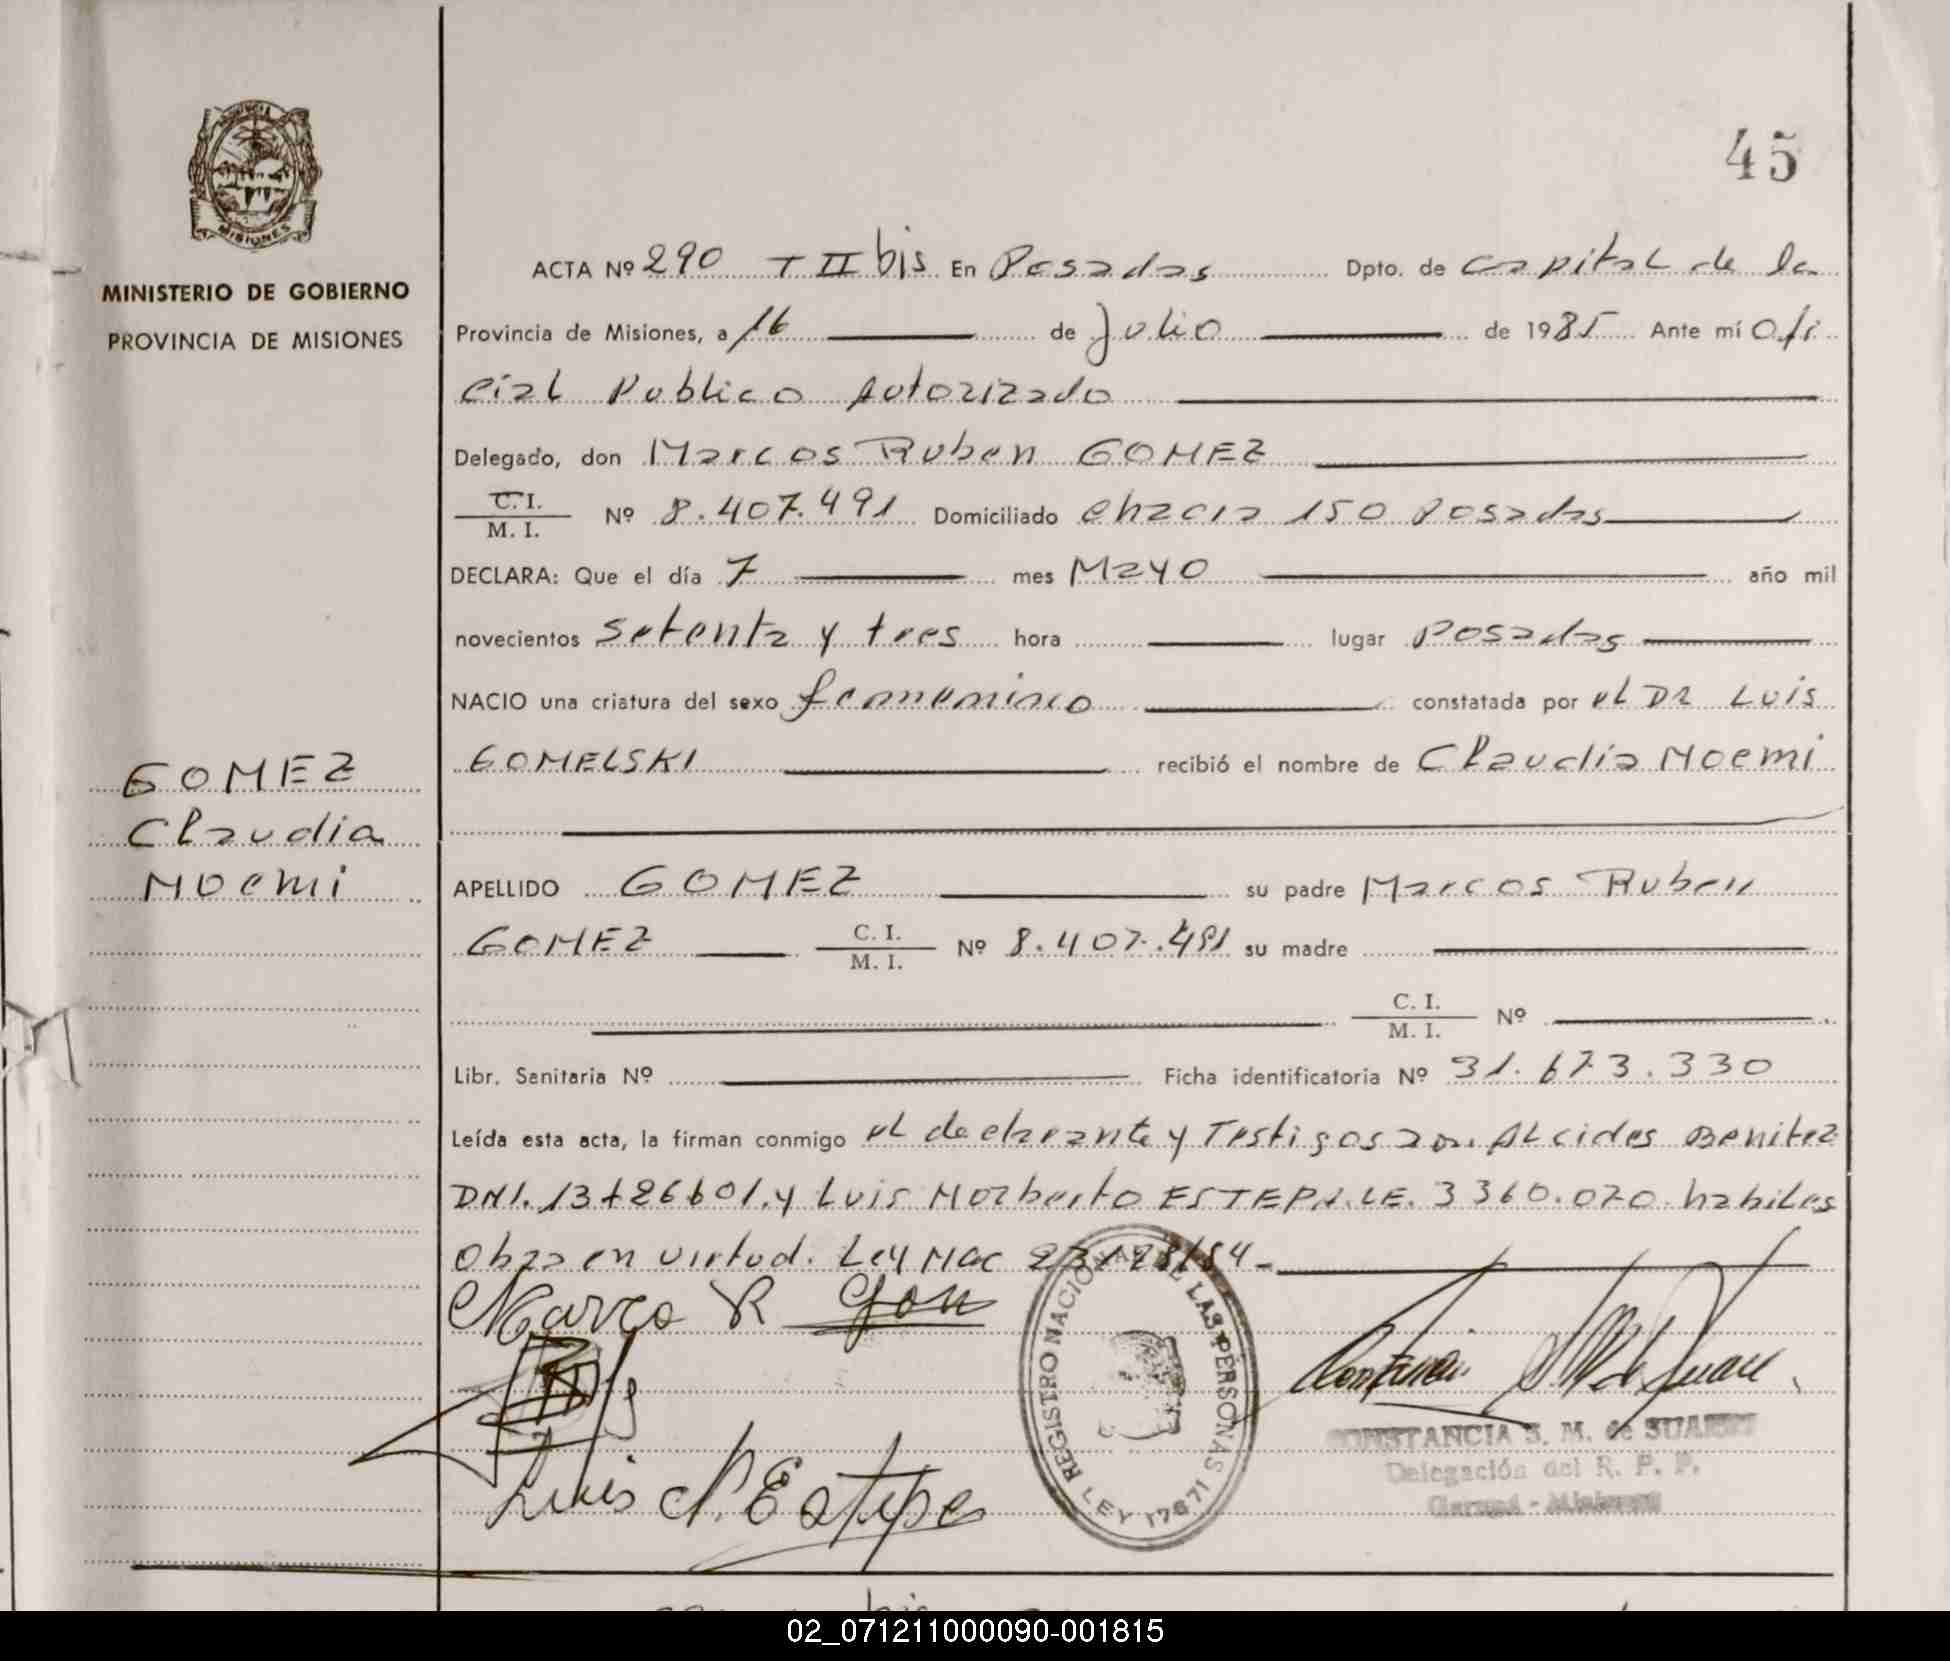 45
PROVINCIA
MISIONES
MINISTERIO DE GOBIERNO
PROVINCIA DE MISIONES
GOMEZ
Claudia
Noemi
ACTA Nº 290 T II bis En Posadas Dpto. de Capital de la
Provincia de Misiones, a 16 de Julio de 1985 Ante mí Ofi
cial Publico Autorizado
Delegado, don Marcos Ruben GOMEZ
C.I.
M. I. Nº 8.407.491 Domiciliado Chacra 150 Posadas
DECLARA: Que el día 7 mes Mayo año mil
novecientos setenta y tres hora lugar Posadas
NACIO una criatura del sexo femenino constatada por el DR Luis
GOMELSKI recibió el nombre de Claudia Noemi
APELLIDO GOMEZ su padre Marcos Ruben
GOMEZ C. I. M. I. Nº 8.407.491 su madre
C. I.
M. I. Nº
Libr. Sanitaria Nº Ficha identificatoria Nº 31.673.330
Leída esta acta, la firman conmigo el declarante y Testigos Alcides Benitez
DNI. y Luis Norberto ESTEPA. LE. 3360.070 habiles
Obra en virtud. Ley Nac 23128/84-
Marco R Gom
Luis N. Estepa
REGISTRO NACIONAL DE LAS PERSONAS
LEY 17671
CONSTANCIA S. M. de SUAREZ
Delegación del R. P. P.
Garupá - Misiones
02_071211000090-001815